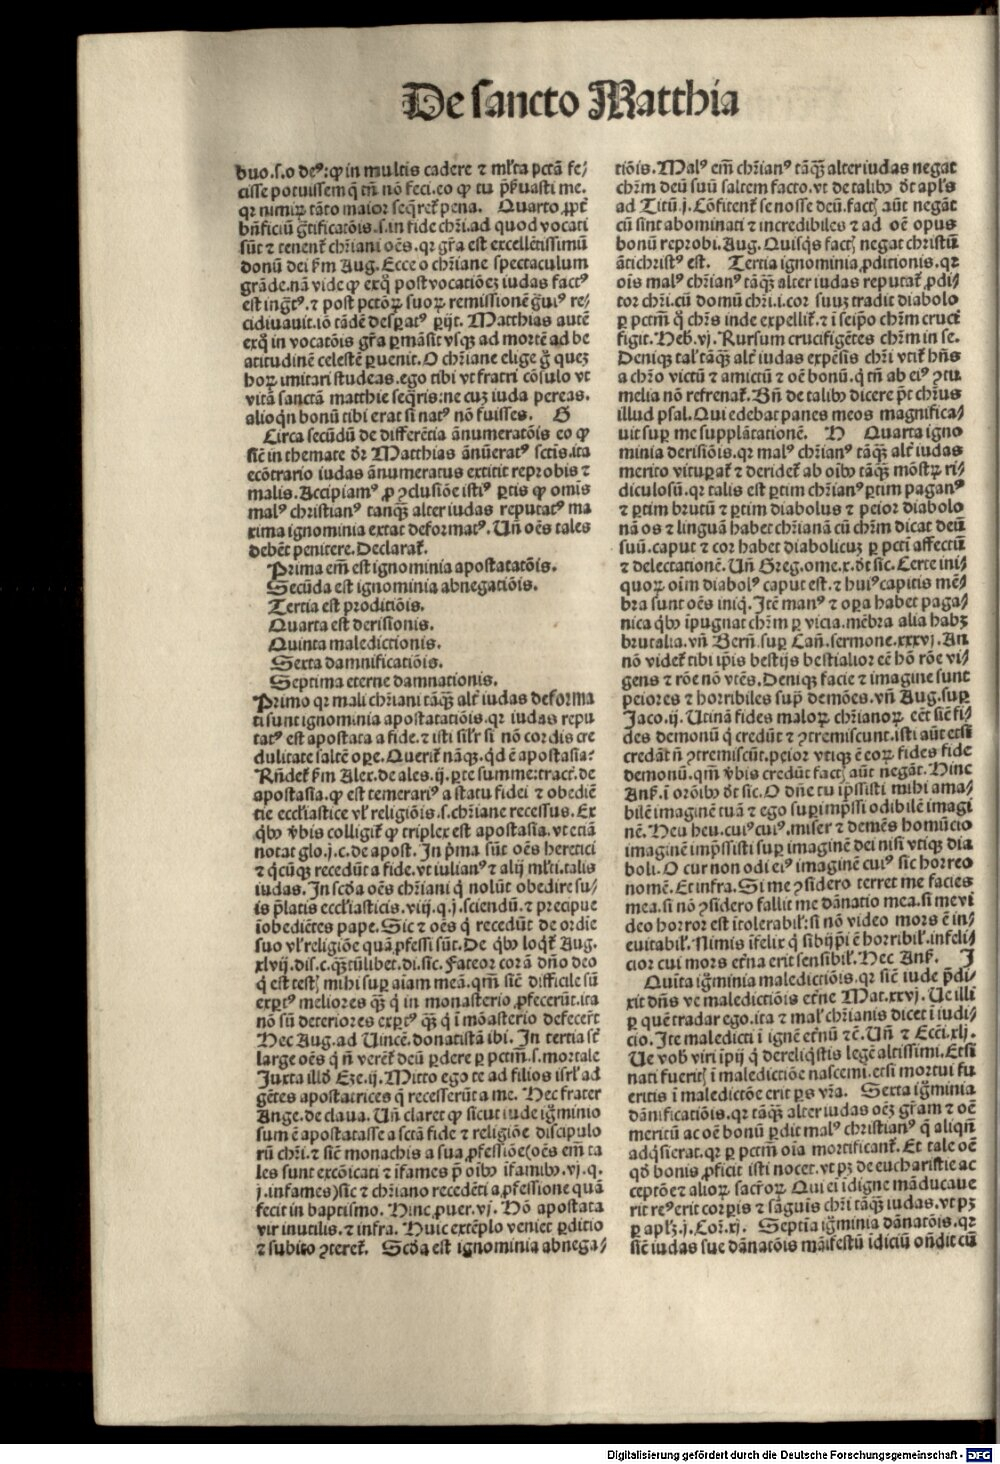 De sancto Matthia
buo.s.o deꝰ:ꝙ in multis cadere ⁊ ml̃ta pctã fe/
cisse potuissem q̃ tñ nõ feci.eo ꝙ tu p̃ẞuasti me.
qꝛ nimiꝝ tãto maior seq̃ret̃ pena. Quarto ꝓpt̃
bñficiũ g̃tificatõis.s.in fide chr̃i.ad quod vocati
sũt ⁊ tenent̃ chr̃iani oẽs.qꝛ gr̃a est excellẽtissimũ
donũ dei ẞm Aug. Ecce o chr̃iane spectaculum
grãde.nã vide ꝙ exq̃ post vocatiõez iudas factꝰ
est ing̃tꝰ.⁊ post pctõꝝ suoꝝ remissionẽ g̃uiꝰ re/
cidiuauit.iõ tãdẽ desꝑatꝰ ꝑijt. Matthias autẽ
exq̃ in vocatõis gr̃a ꝑmãsit vsqꝫ ad mortẽ ad be
atitudinẽ celestẽ ꝑuenit. O chr̃iane elige g̃ quez
hoꝝ imitari studeas.ego tibi vt fratri cõsulo vt
vitã sanctã matthie seq̃ris:ne cuz iuda pereas.
alioq̃n bonũ tibi erat si natꝰ nõ fuisses. G
Circa secũdũ de differẽtia ãnumeratõis eo ꝙ
sic̃ in themate dr̃ Matthias ãnũeratꝰ sctis.ita
ecõtrario iudas ãnumeratus extitit reprobis ⁊
malis. Accipiamꝰ ꝓ ꝯclusiõe istiꝰ ꝑtis ꝙ omĩs
malꝰ christianꝰ tanqꝫ̃ alter iudas reputatꝰ ma
xima ignominia extat deformatꝰ. Uñ oẽs tales
debẽt penitere. Declarat̃.
Prima em̃ est ignominia apostatatõis.
Secũda est ignominia abnegatiõis.
Tertia est proditiõis.
Quarta est derisionis.
Quinta maledictionis.
Sexta damnificatiõis.
Septima eterne damnationis.
Primo qꝛ mali chr̃iani tãqꝫ̃ alt̃ iudas deforma
ti sunt ignominia apostatatiõis.qꝛ iudas repu
tatꝰ est apostata a fide.⁊ isti sil̃r si nõ cordis cre
dulitate saltẽ oꝑe. Querit̃ nãqꝫ.qͥd ẽ apostasia:
Rñdet̃ ẞm Alex.de ales.ij.ꝑte summe:tract̃.de
apostasia.ꝙ est temerariꝰ a statu fidei ⁊ obediẽ
tie eccl̃iastice vl̃ religiõis.s.chr̃iane recessus. Ex
qͥbꝰ v̾bis colligit̃ ꝙ triplex est apostasia.vt etiã
notat glo.j.c.de apost. In pͥma sũt oẽs heretici
⁊ qͥcũqꝫ recedũt a fide.vt iulianꝰ ⁊ alij ml̃ti.talis
iudas. In scd̃a oẽs chr̃iani qͥ nolũt obedire su/
is p̃latis eccl̃iasticis.viij.q.j.sciendũ.⁊ precipue
inobediẽtes pape. Sic ⁊ oẽs qͥ recedũt de ordie
suo vl̃ religiõe quã ꝓfessi sũt. De qͥbꝰ loqͥt̃ Aug.
xlvij.dis.c.qꝫ̃tũlibet.di.sic. Fateor corã dño deo
qͥ est testꝭ mihi suꝑ aĩam meã.qm̃ sic̃ difficile sũ
exꝑtꝰ meliores qꝫ̃ qͥ in monasterio ꝓfecerũt.ita
nõ sũ deteriores exꝑtꝰ qꝫ̃ qͥ ĩ mõasterio defecer̃t
Hec Aug.ad Vincẽ.donatistã ibi. In tertia sc̃t
large oẽs qͥ ñ verẽt̃ deũ ꝑdere ꝑ pctm̃.s.mortale
Juxta illd̾ Eze.ij. Mitto ego te ad filios isrl̃ ad
gẽtes apostatrices q̃ recesserũt a me. Hec frater
Ange.de claua. Uñ claret ꝙ sicut iude ig̃minio
sum ẽ apostatasse a sctã fide ⁊ religiõe discipulo
rũ chr̃i.⁊ sic̃ monachis a sua ꝓfessiõe(oẽs em̃ ta
les sunt excõicati ⁊ ĩfames p̃ oĩbꝰ ĩfamibꝰ.vj.q.
j.infames)sic ⁊ chr̃iano recedẽti a ꝓfessione quã
fecit in baptismo. Hinc ꝓuer.vj. Hõ apostata
vir inutilis.⁊ infra. Huic extẽplo veniet ꝑditio
⁊ subito ꝯteret̃. Scd̃a est ignominia abnega/
tiõis. Malꝰ em̃ chr̃ianꝰ tãqꝫ̃ alter iudas negat
chr̃m deũ suũ saltem facto.vt de talibꝰ dt̃ apl̃s
ad Titũ.j. Cõfitent̃ se nosse deũ.factꝭ aũt negãt
cũ sint abominati ⁊ incredibiles ⁊ ad oẽ opus
bonũ reprobi. Aug. Quisqͥs factꝭ negat christũ
ãtichristꝰ est. Tertia ignominia ꝓditionis.qꝛ
oĩs malꝰ chr̃ianꝰ tãqꝫ̃ alter iudas reputat̃ ꝓdi/
tor chr̃i.cũ domũ chr̃i.i.cor suuz tradit diabolo
ꝑ pctm̃ qͥ chr̃s inde expellit̃.⁊ ĩ seip̃o chr̃m cruct̃
figit. Heb.vj. Rursum crucifigẽtes chr̃m in se.
Deniqꝫ tal̃ tãqꝫ̃ alt̃ iudas expẽsis chr̃i vtit̃ hñs
a chr̃o victũ ⁊ amictũ ⁊ oẽ bonũ.qͥ tñ ab eiꝰ ꝯtu
melia nõ refrenat̃. Bñ de talibꝰ dicere pt̃ chr̃us
illud psal. Qui edebat panes meos magnifica/
uit suꝑ me supplãtationẽ. H Quarta igno
minia derisiõis.qꝛ malꝰ chr̃ianꝰ tãqꝫ̃ alt̃ iudas
merito vituꝑat̃ ⁊ deridet̃ ab oĩbꝰ tãqꝫ̃ mõstꝝ ri/
diculosũ.qꝛ talis est ꝑtim chr̃ianꝰ ꝑtim paganꝰ
⁊ ꝑtim brutũ ⁊ ꝑtim diabolus ⁊ peior diabolo
nã os ⁊ linguã habet chr̃ianã cũ chr̃m dicat deũ
suũ.caput ⁊ cor habet diabolicuz ꝑ pcti affectũ
⁊ delectationẽ. Uñ Greg.ome.x.dt̃ sic. Certe ini/
quoꝝ oĩm diabolꝰ caput est.⁊ huiꝰ capitis mẽ/
bra sunt oẽs iniqͥ. Itẽ manꝰ ⁊ oꝑa habet paga/
nica qͥbꝰ ĩpugnat chr̃m ꝑ vicia.mẽbra alia habꝫ
brutalia.vñ Berñ.suꝑ Cañ.sermone.xxxvj. An
nõ videt̃ tibi ip̃is bestijs bestialior eẽ hõ rõe vi/
gens ⁊ rõe nõ vtẽs. Deniqꝫ facie ⁊ imagine sunt
peiores ⁊ horribiles sup̃ demões. vñ Aug.suꝑ
Jaco.ij. Utinã fides maloꝝ chr̃ianoꝝ eẽt sic̃ fi/
des demonũ qͥ credũt ⁊ ꝯtremiscunt.isti aũt etsi
credãt ñ ꝯtremiscũt.peior vtiqꝫ ẽ eoꝝ fides fide
demonũ.qm̃ v̾bis credũt factꝭ aũt negãt. Hinc
Anẞ.ĩ orõibꝰ dt̃ sic. O dñe tu ip̃ssisti mihi ama/
bilẽ imaginẽ tuã ⁊ ego suꝑimp̃ssi odibilẽ imagi
nẽ. Heu heu.cuiꝰ cuiꝰ.miser ⁊ demẽs homũcio
imaginẽ imp̃ssisti suꝑ imaginẽ dei nisi vtiqꝫ dia
boli. O cur non odi eiꝰ imaginẽ cuiꝰ sic horreo
nomẽ. Et infra. Si me ꝯsidero terret me facies
mea.si nõ ꝯsidero fallit me dãnatio mea.si me vi
deo horror est ĩtolerabil̃:si nõ video mors ẽ in/
euitabil̃. Nimis ĩfelix qͥ sibijp̃i ẽ horribil̃.infeli/
cior cui mors et̃na erit sensibil̃. Hec Anẞ. J
Quĩta ig̃minia maledictiõis.qꝛ sic̃ iude p̃di/
xit dñs ve maledictiõis et̃ne Mat.xxvj. Ue illi
ꝑ quẽ tradar ego.ita ⁊ mal̃ chr̃ianis dicet ĩ iudi/
cio. Ite maledicti ĩ ignẽ et̃nũ ⁊c̃. Uñ ⁊ Ecci.xlj.
Ue vob̾ viri ĩpij qͥ dereliqͥstis legẽ altissimi. Etsi
nati fueritꝭ ĩ maledictiõe nascemĩ.etsi mortui fu
eritis ĩ maledictõe erit ꝑs vr̃a. Sexta ig̃minia
dãnificatiõis.qꝛ tãqꝫ̃ alter iudas oẽz gr̃am ⁊ oẽ
meritũ ac oẽ bonũ ꝑdit malꝰ christianꝰ qͥ aliqñ
adq̃sierat.qꝛ ꝑ pctm̃ oĩa mortificant̃. Et tale oẽ
qd̾ bonis ꝓficit isti nocet.vt pꝫ de eucharistie ac
ceptõe ⁊ alioꝝ sacr̃oꝝ. Qui ei ĩdigne mãducaue
rit reꝰ erit corꝑis ⁊ sãguĩs chr̃i tãqꝫ̃ iudas.vt pꝫ
ꝑ apl̃ꝫ.j. Cor̃.xj. Septĩa ig̃minia dãnatõis.qꝛ
sic̃ iudas sue dãnatõis mãifestũ ĩdiciũ oñdit cũ
Digitalisierung gefördert durch die Deutsche Forschungsgemeinschaft - DFG